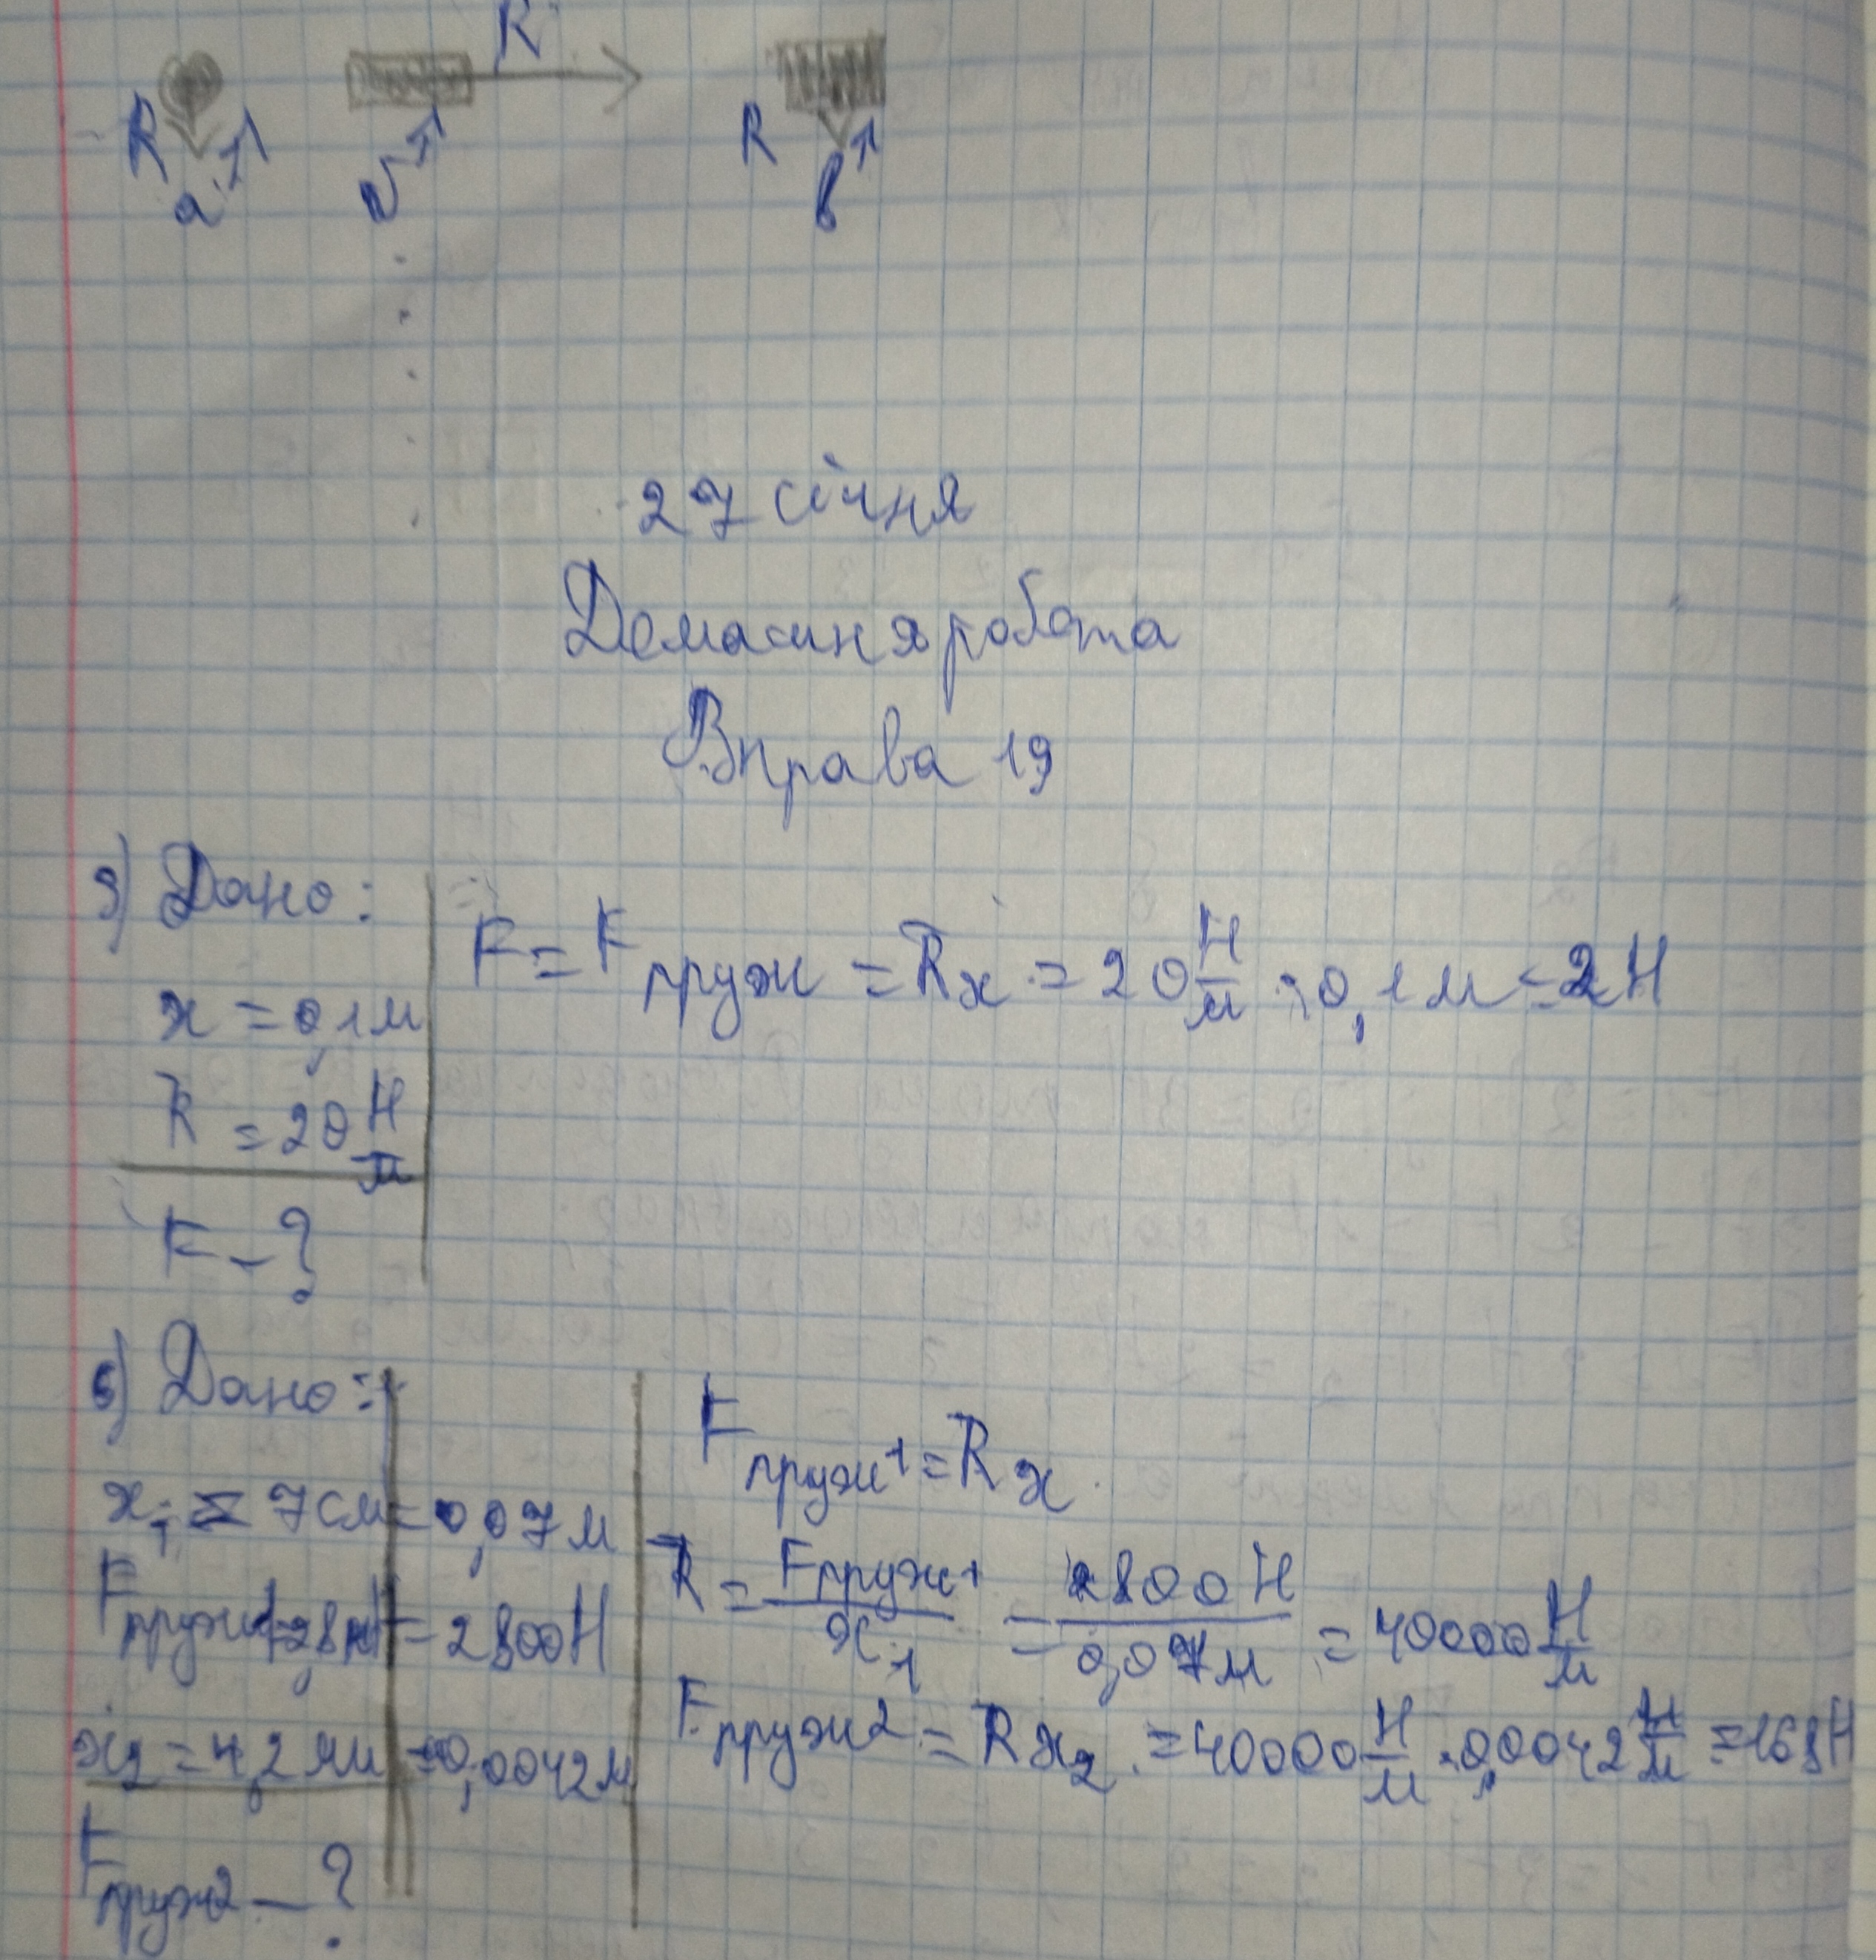 R
R R
а б в
27 січня
Домашня робота
Вправа 19
3) Дано:
x = 0,1 м
k = 20 Н/м
F - ?
F = Fпруж = kx = 20 Н/м · 0,1 м = 2 Н
6) Дано:
x1 = 7 см = 0,07 м
Fпруж1 = 2,8 кН = 2800 Н
x2 = 4,2 мм = 0,0042 м
Fпруж2 - ?
Fпруж1 = kx
k = Fпруж1/x1 = 2800 Н/0,07 м = 40000 Н/м
Fпруж2 = kx2 = 40000 Н/м · 0,0042 Н/м = 168 Н